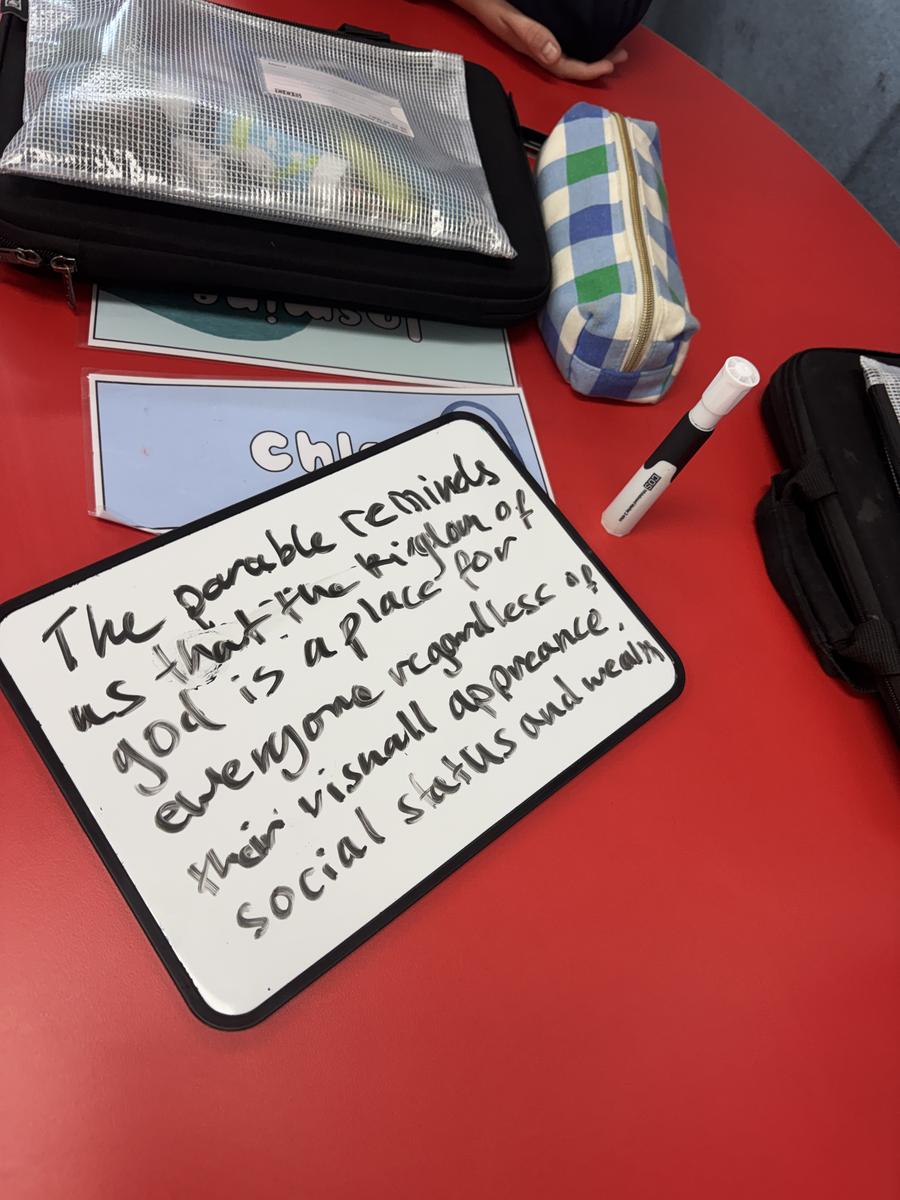 Jasmine
Chl
The parable reminds
us that the kingdom of
god is a place for
everyone regardless of
their visuall appreance.
social status and wealth